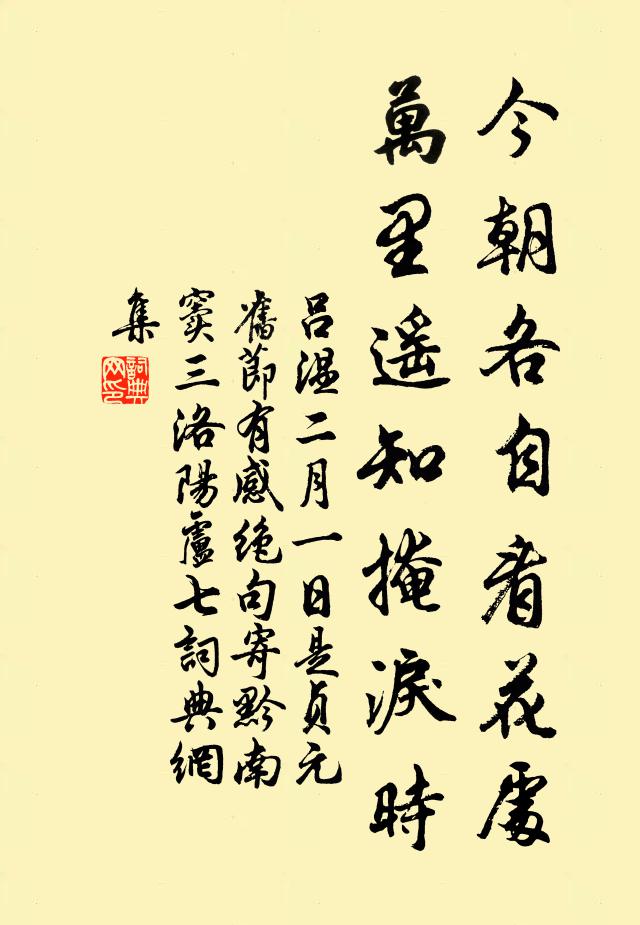 今朝各自看花處
萬里遥知掩淚時
吕温二月一日是貞元
舊節有感絶句寄黔南
竇三洛陽盧七詞典網
集
詞典
网印